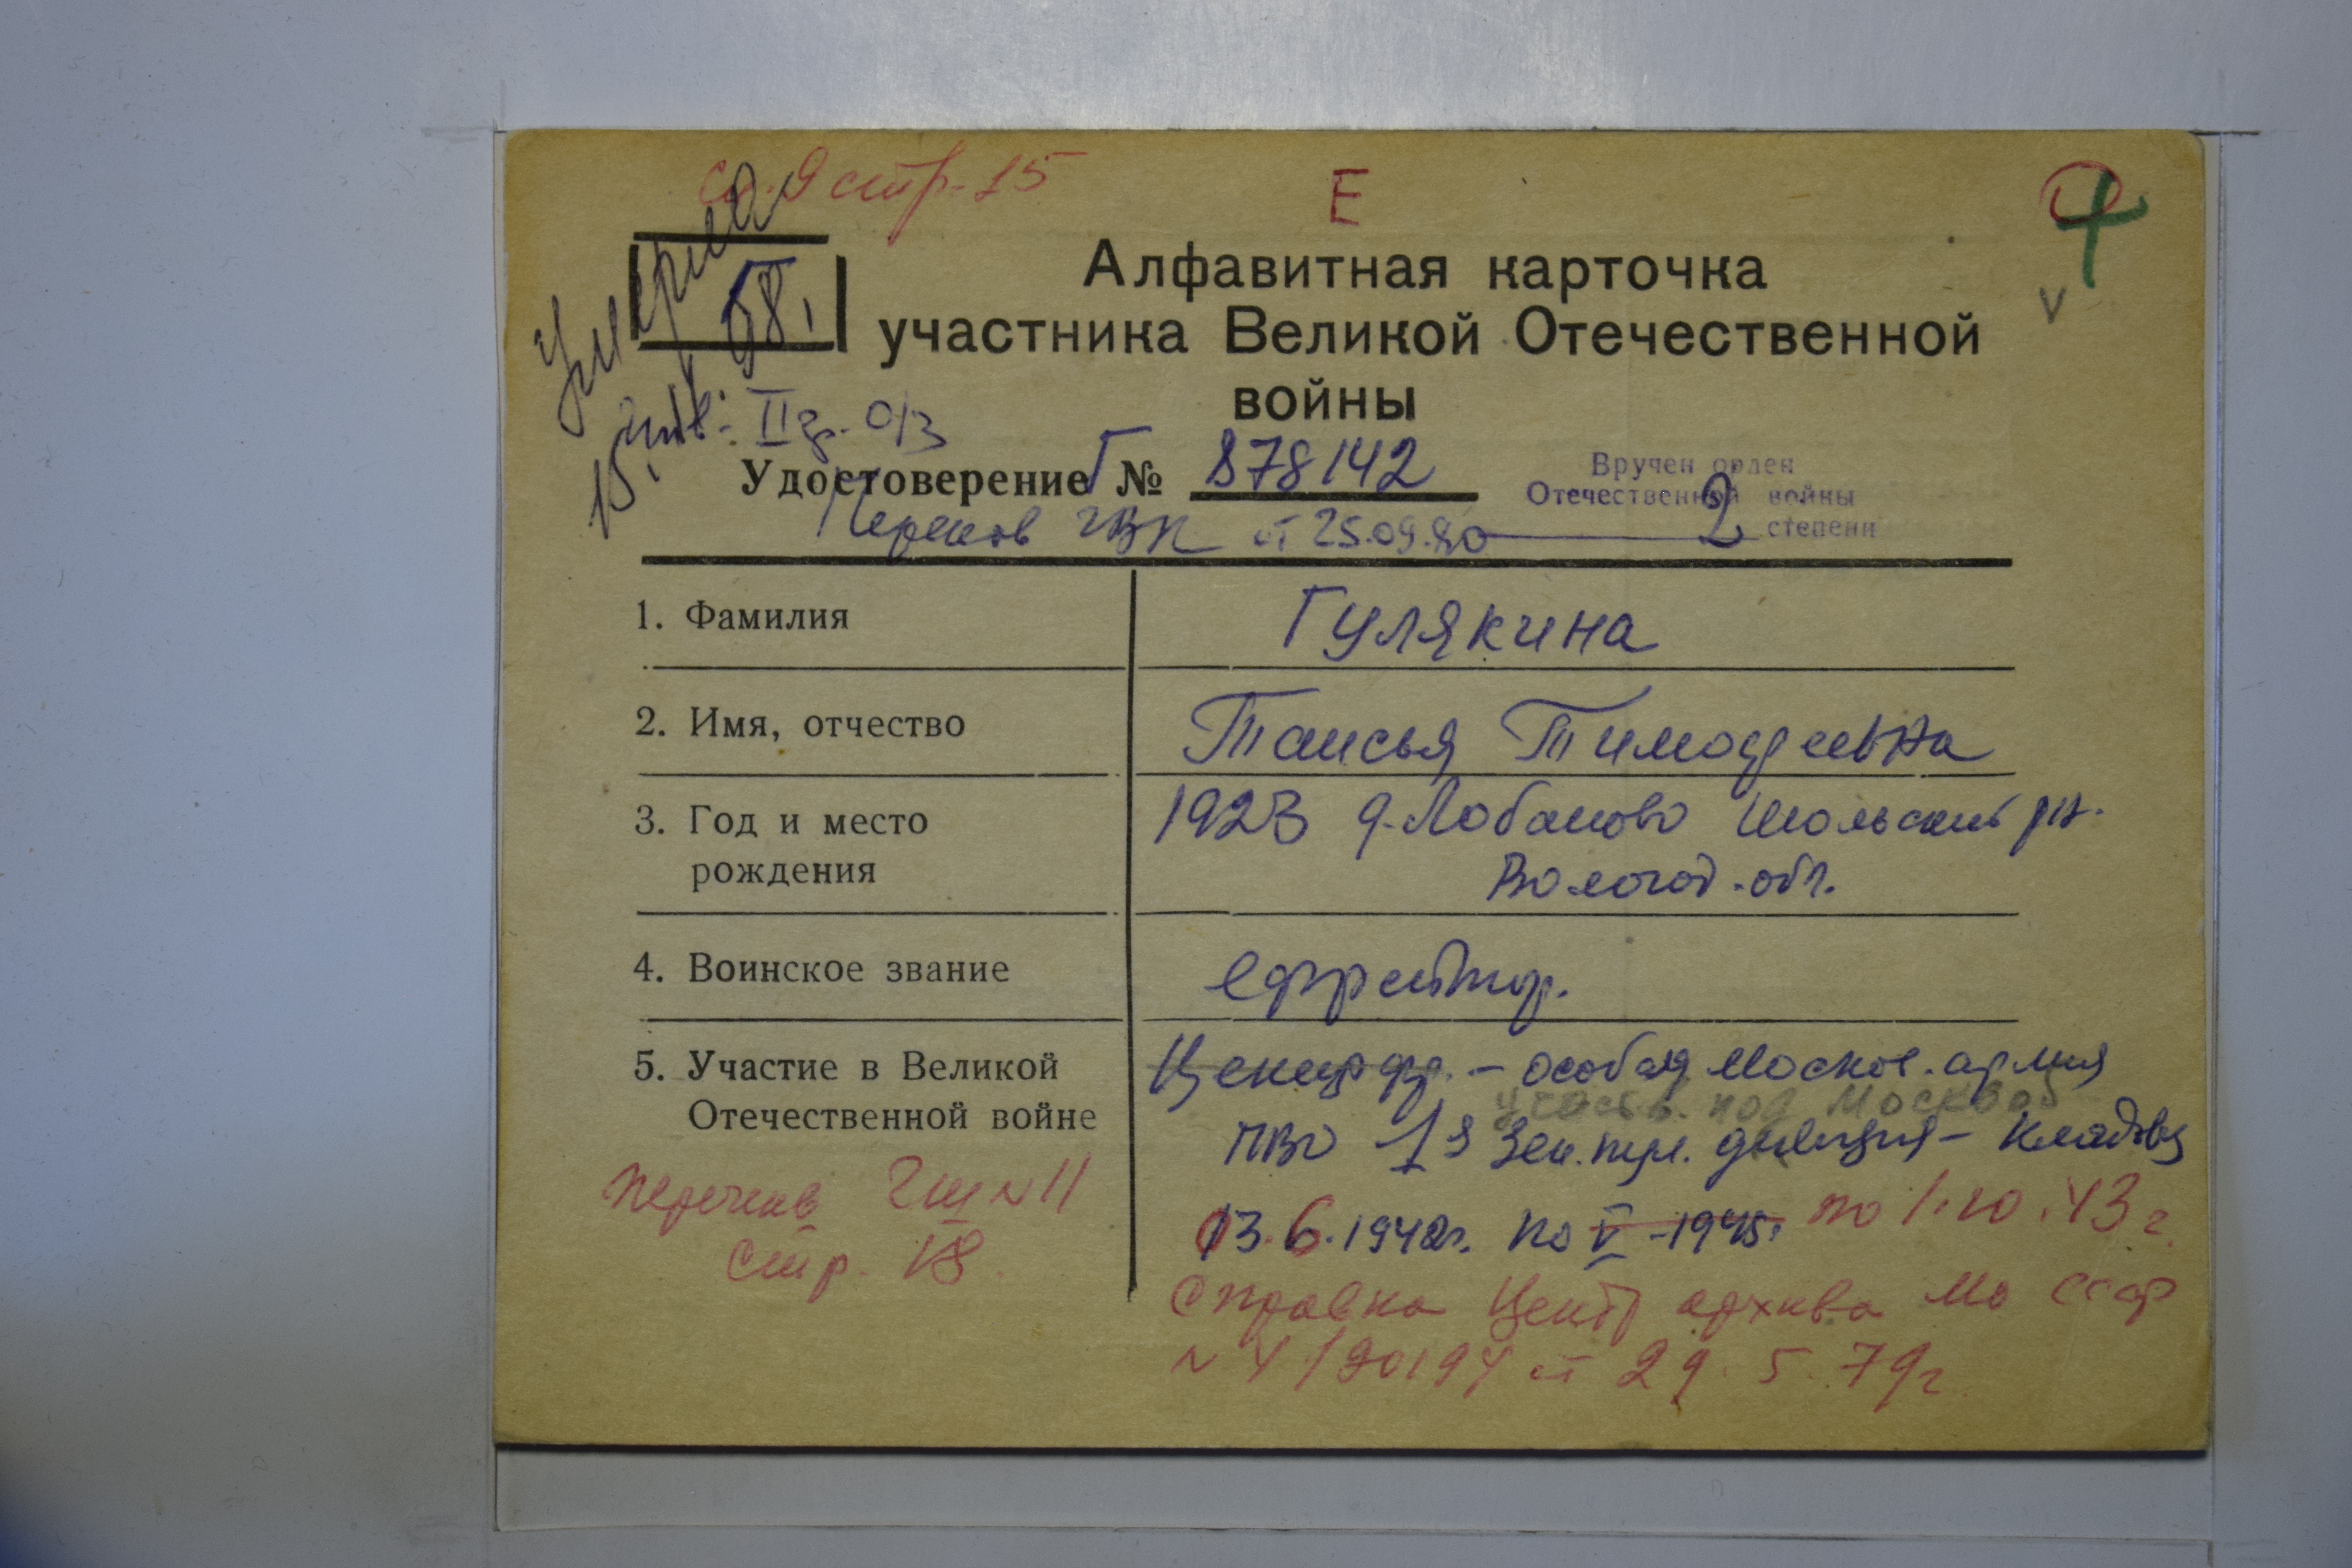 стр. 15
Е
Умерла
58,
Алфавитная карточка
участника Великой Отечественной
войны
инв. II гр. О/З
15.
Удостоверение Г № 878142
Вручен орден
Отечественной войны
2 степени
ГВК от 25.09.80
1. Фамилия
Гулякина
2. Имя, отчество
Таисья Тимофеевна
3. Год и место
рождения
1923 д. Лобаново Шольский рн.
Вологод. обл.
4. Воинское звание
ефрейтор.
5. Участие в Великой
Отечественной войне
фр. – особая Москов. армия
участв. под Москвой
ПВО 1я Зен. дивизия –
13.6.1942г. по V – 1945г. по 1.10.43 г.
Перечень ГШ № 11
стр. 18
Справка Центр архива МО СССР
№ 4/90194 от 29.5.79г